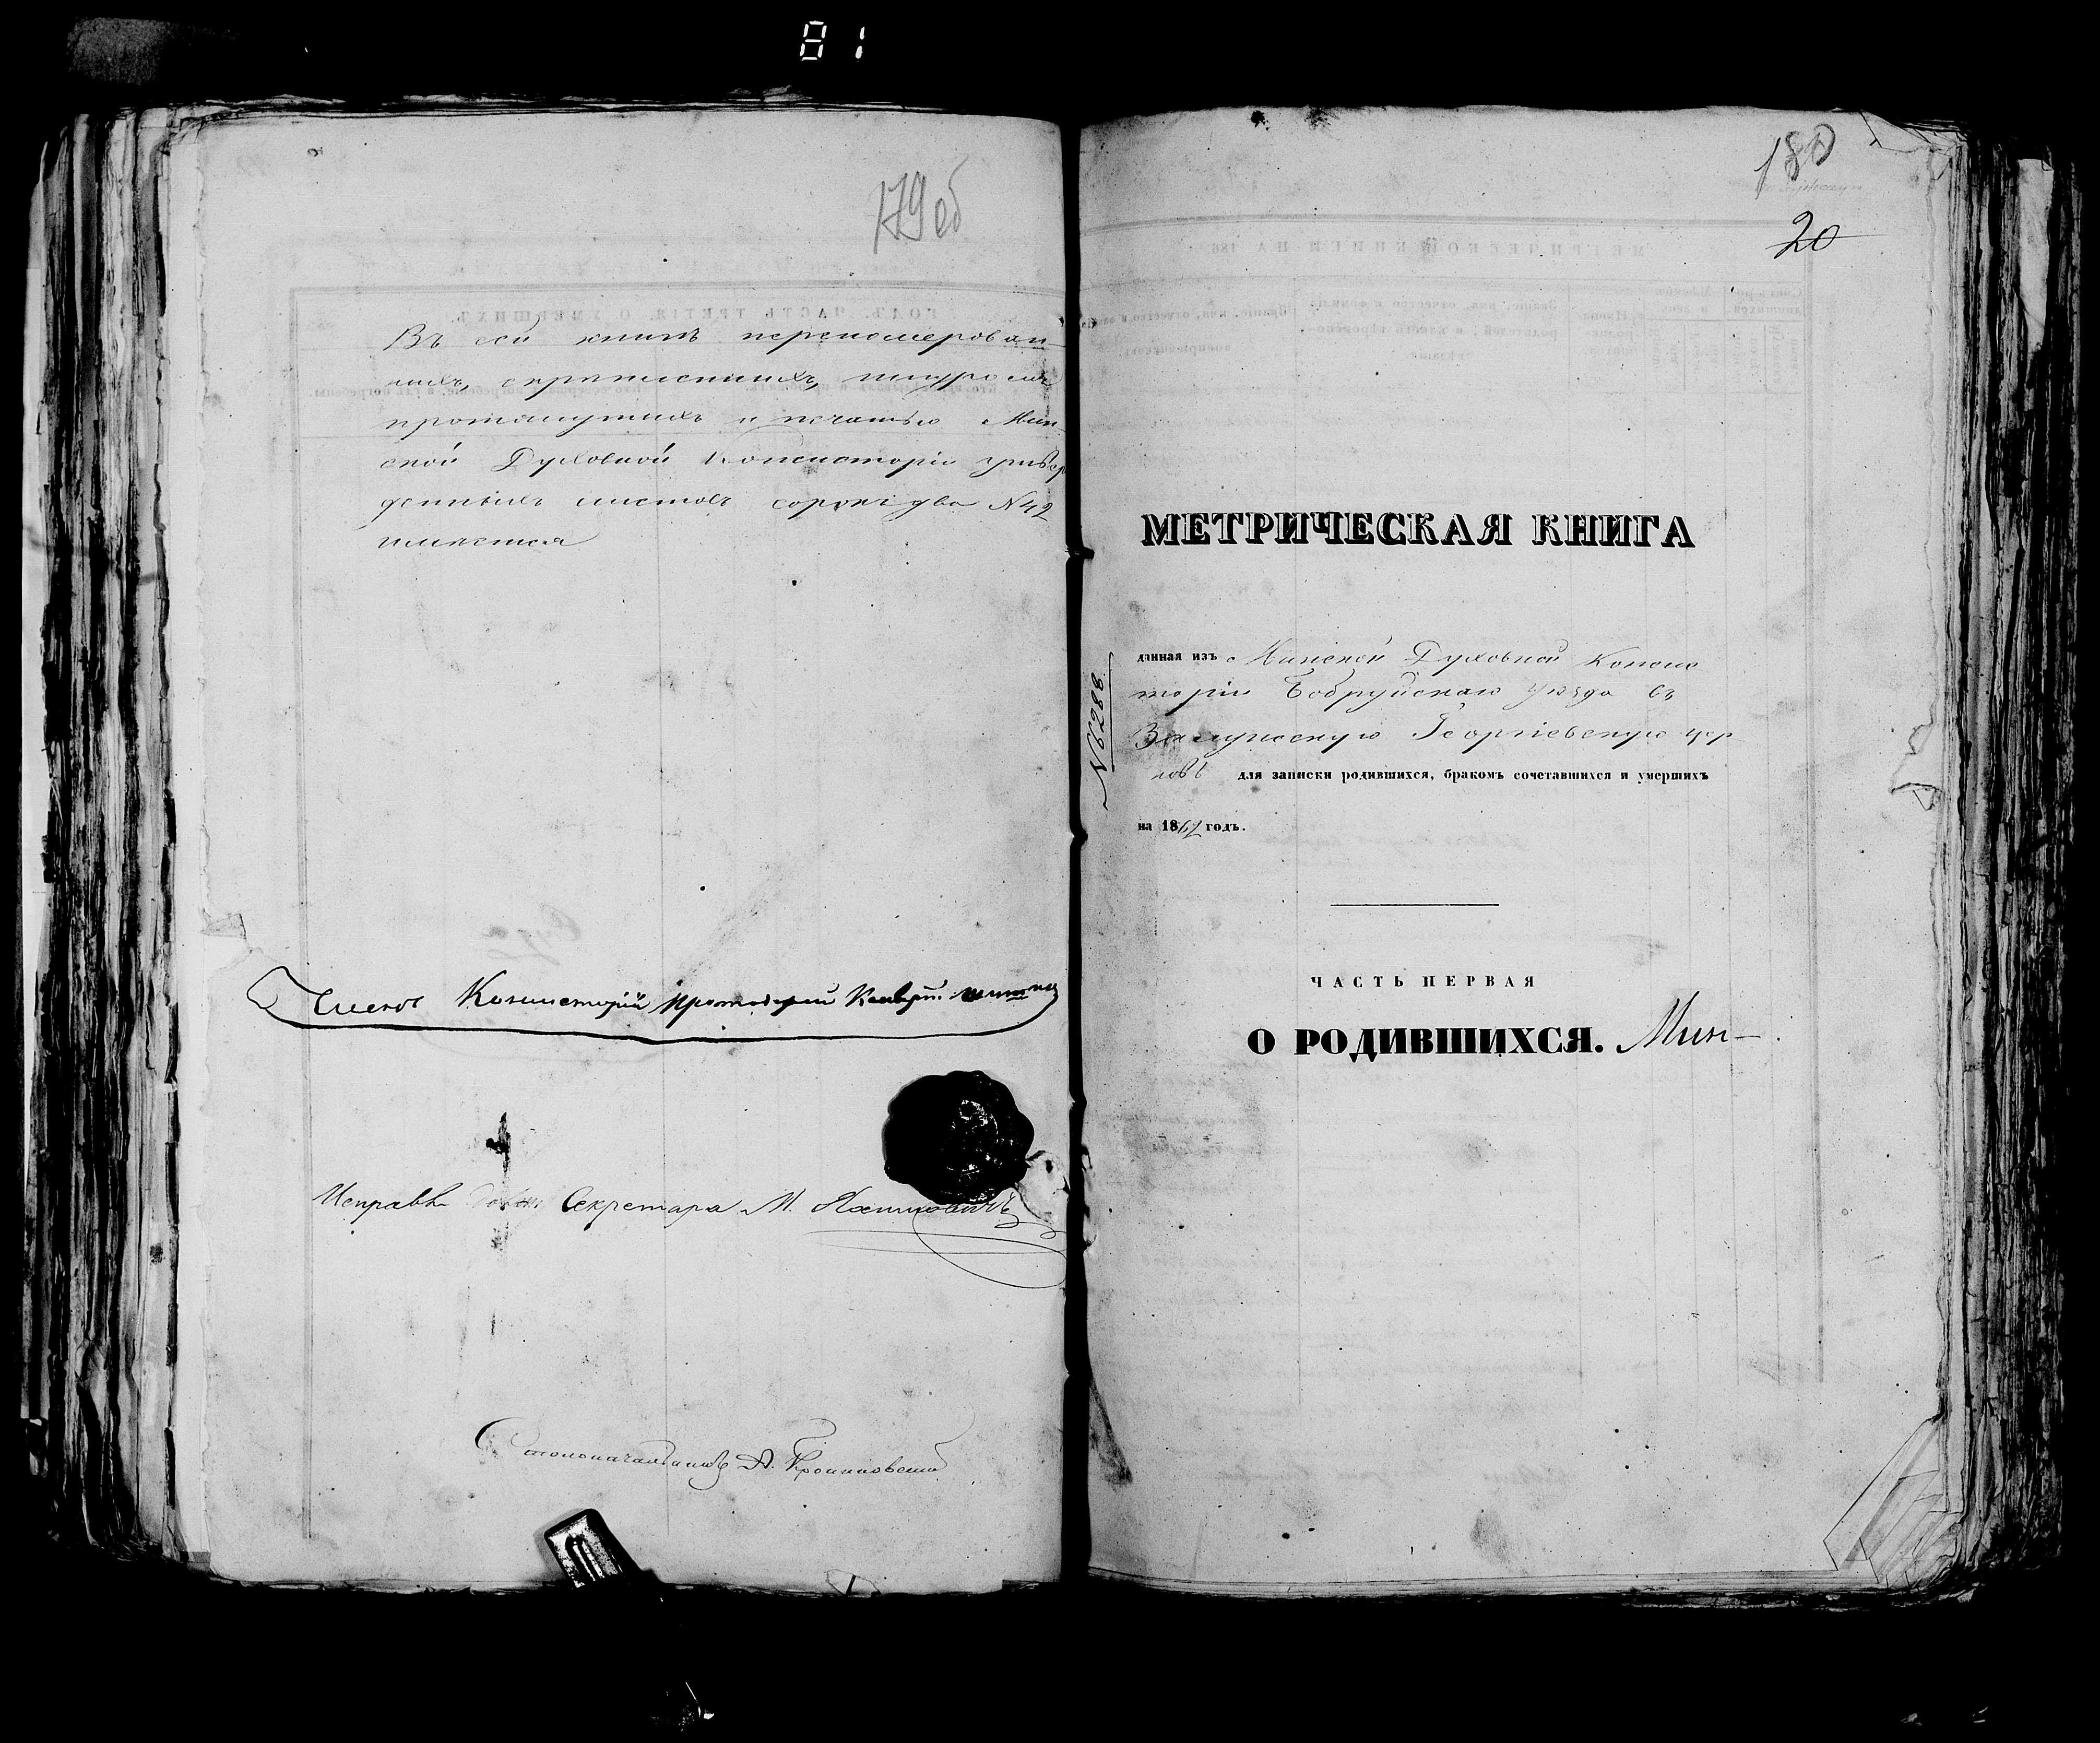 81
179об
Въ сей книгѣ перенумерован-
ныхъ, скрѣпленныхъ, шнуромъ
протянутыхъ и печатью Мин-
ской Духовной Консисторіи утвер
жденныхъ листовъ сорокъ два № 42
имѣется
Членъ Консисторіи Протоіерей
Исправл. Секретаря М.
Столоначальникъ А.
180
20
МЕТРИЧЕСКАЯ КНИГА
№ 6288
данная изъ Минской Духовной Консис
торіи Бобруйскаго уѣзда въ
Георгіевскую цер
ковь для записки родившихся, бракомъ сочетавшихся и умершихъ
на 1862 годъ.
ЧАСТЬ ПЕРВАЯ
О РОДИВШИХСЯ. Мин-